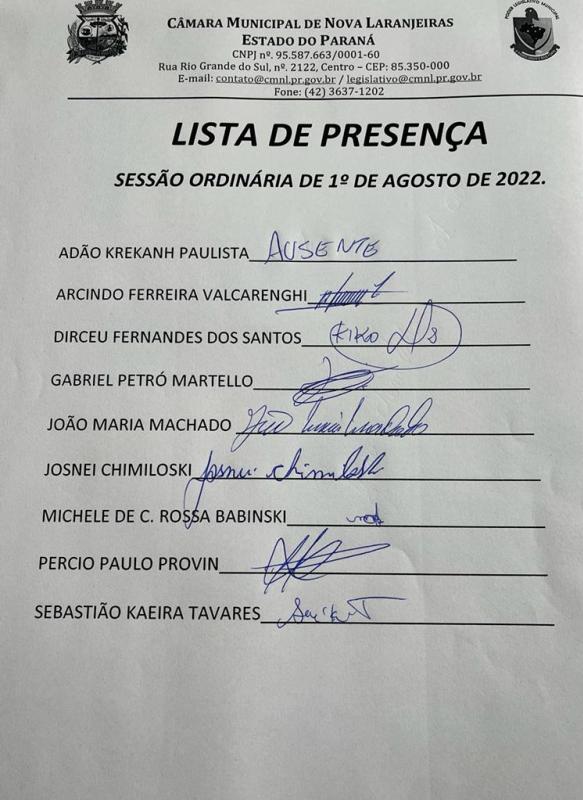 CÂMARA MUNICIPAL DE NOVA LARANJEIRAS
ESTADO DO PARANÁ
CNPJ nº. 95.587.663/0001-60
Rua Rio Grande do Sul, nº. 2122, Centro – CEP: 85.350-000
E-mail: contato@cmnl.pr.gov.br / legislativo@cmnl.pr.gov.br
Fone: (42) 3637-1202
LISTA DE PRESENÇA
SESSÃO ORDINÁRIA DE 1º DE AGOSTO DE 2022.
ADÃO KREKANH PAULISTA AUSENTE
ARCINDO FERREIRA VALCARENGHI
DIRCEU FERNANDES DOS SANTOS
GABRIEL PETRÓ MARTELLO
JOÃO MARIA MACHADO João Maria Machado
JOSNEI CHIMILOSKI Josnei Chimiloski
MICHELE DE C. ROSSA BABINSKI
PERCIO PAULO PROVIN
SEBASTIÃO KAEIRA TAVARES